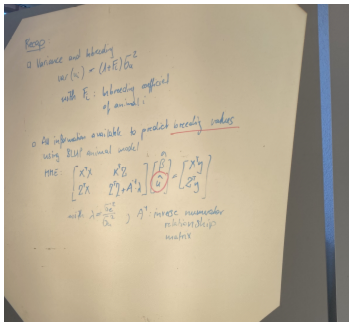 Recap
□ Variance and inbreeding
var(uᵢ) = (1+Fᵢ)σᵤ²
with Fᵢ: inbreeding coefficient
of animal i
□ All information available to predict breeding values
using BLUP animal model
MME: [XᵀX XᵀZ; ZᵀX ZᵀZ+A⁻¹λ] [β̂; û] = [Xᵀy; Zᵀy]
with λ = σₑ²/σᵤ² ; A⁻¹: inverse numerator
relationship
matrix